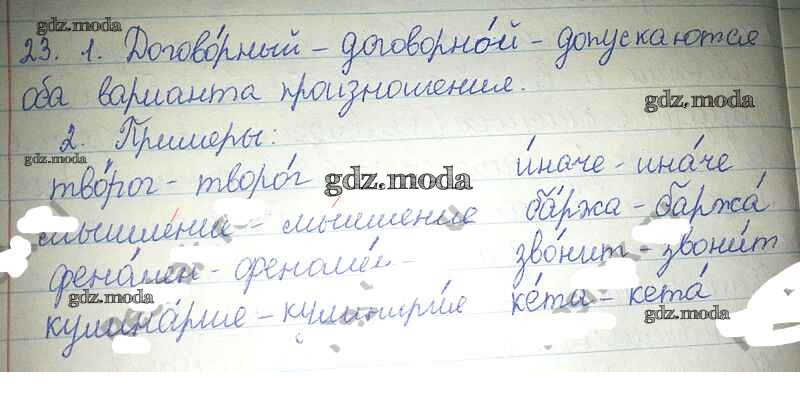 gdz.moda
23. 1. Догово́рный – договорно́й – допускаются
оба варианта произношения.
gdz.moda
2. Примеры:
gdz.moda
тво́рог – творо́г
gdz.moda
и́наче – ина́че
мышле́ние – мы́шление
ба́ржа – баржа́
фено́мен – феноме́н
зво́нит – звони́т
gdz.moda
gdz.moda
кулина́рия – кулинари́я
ке́та – кета́
gdz.moda
gdz.moda